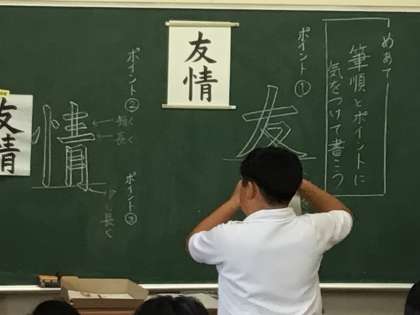 めあて
筆順とポイントに
気をつけて書こう
ポイント①
友
友情
ポイント②
情
短く
長く
ポイント③
長く
友情